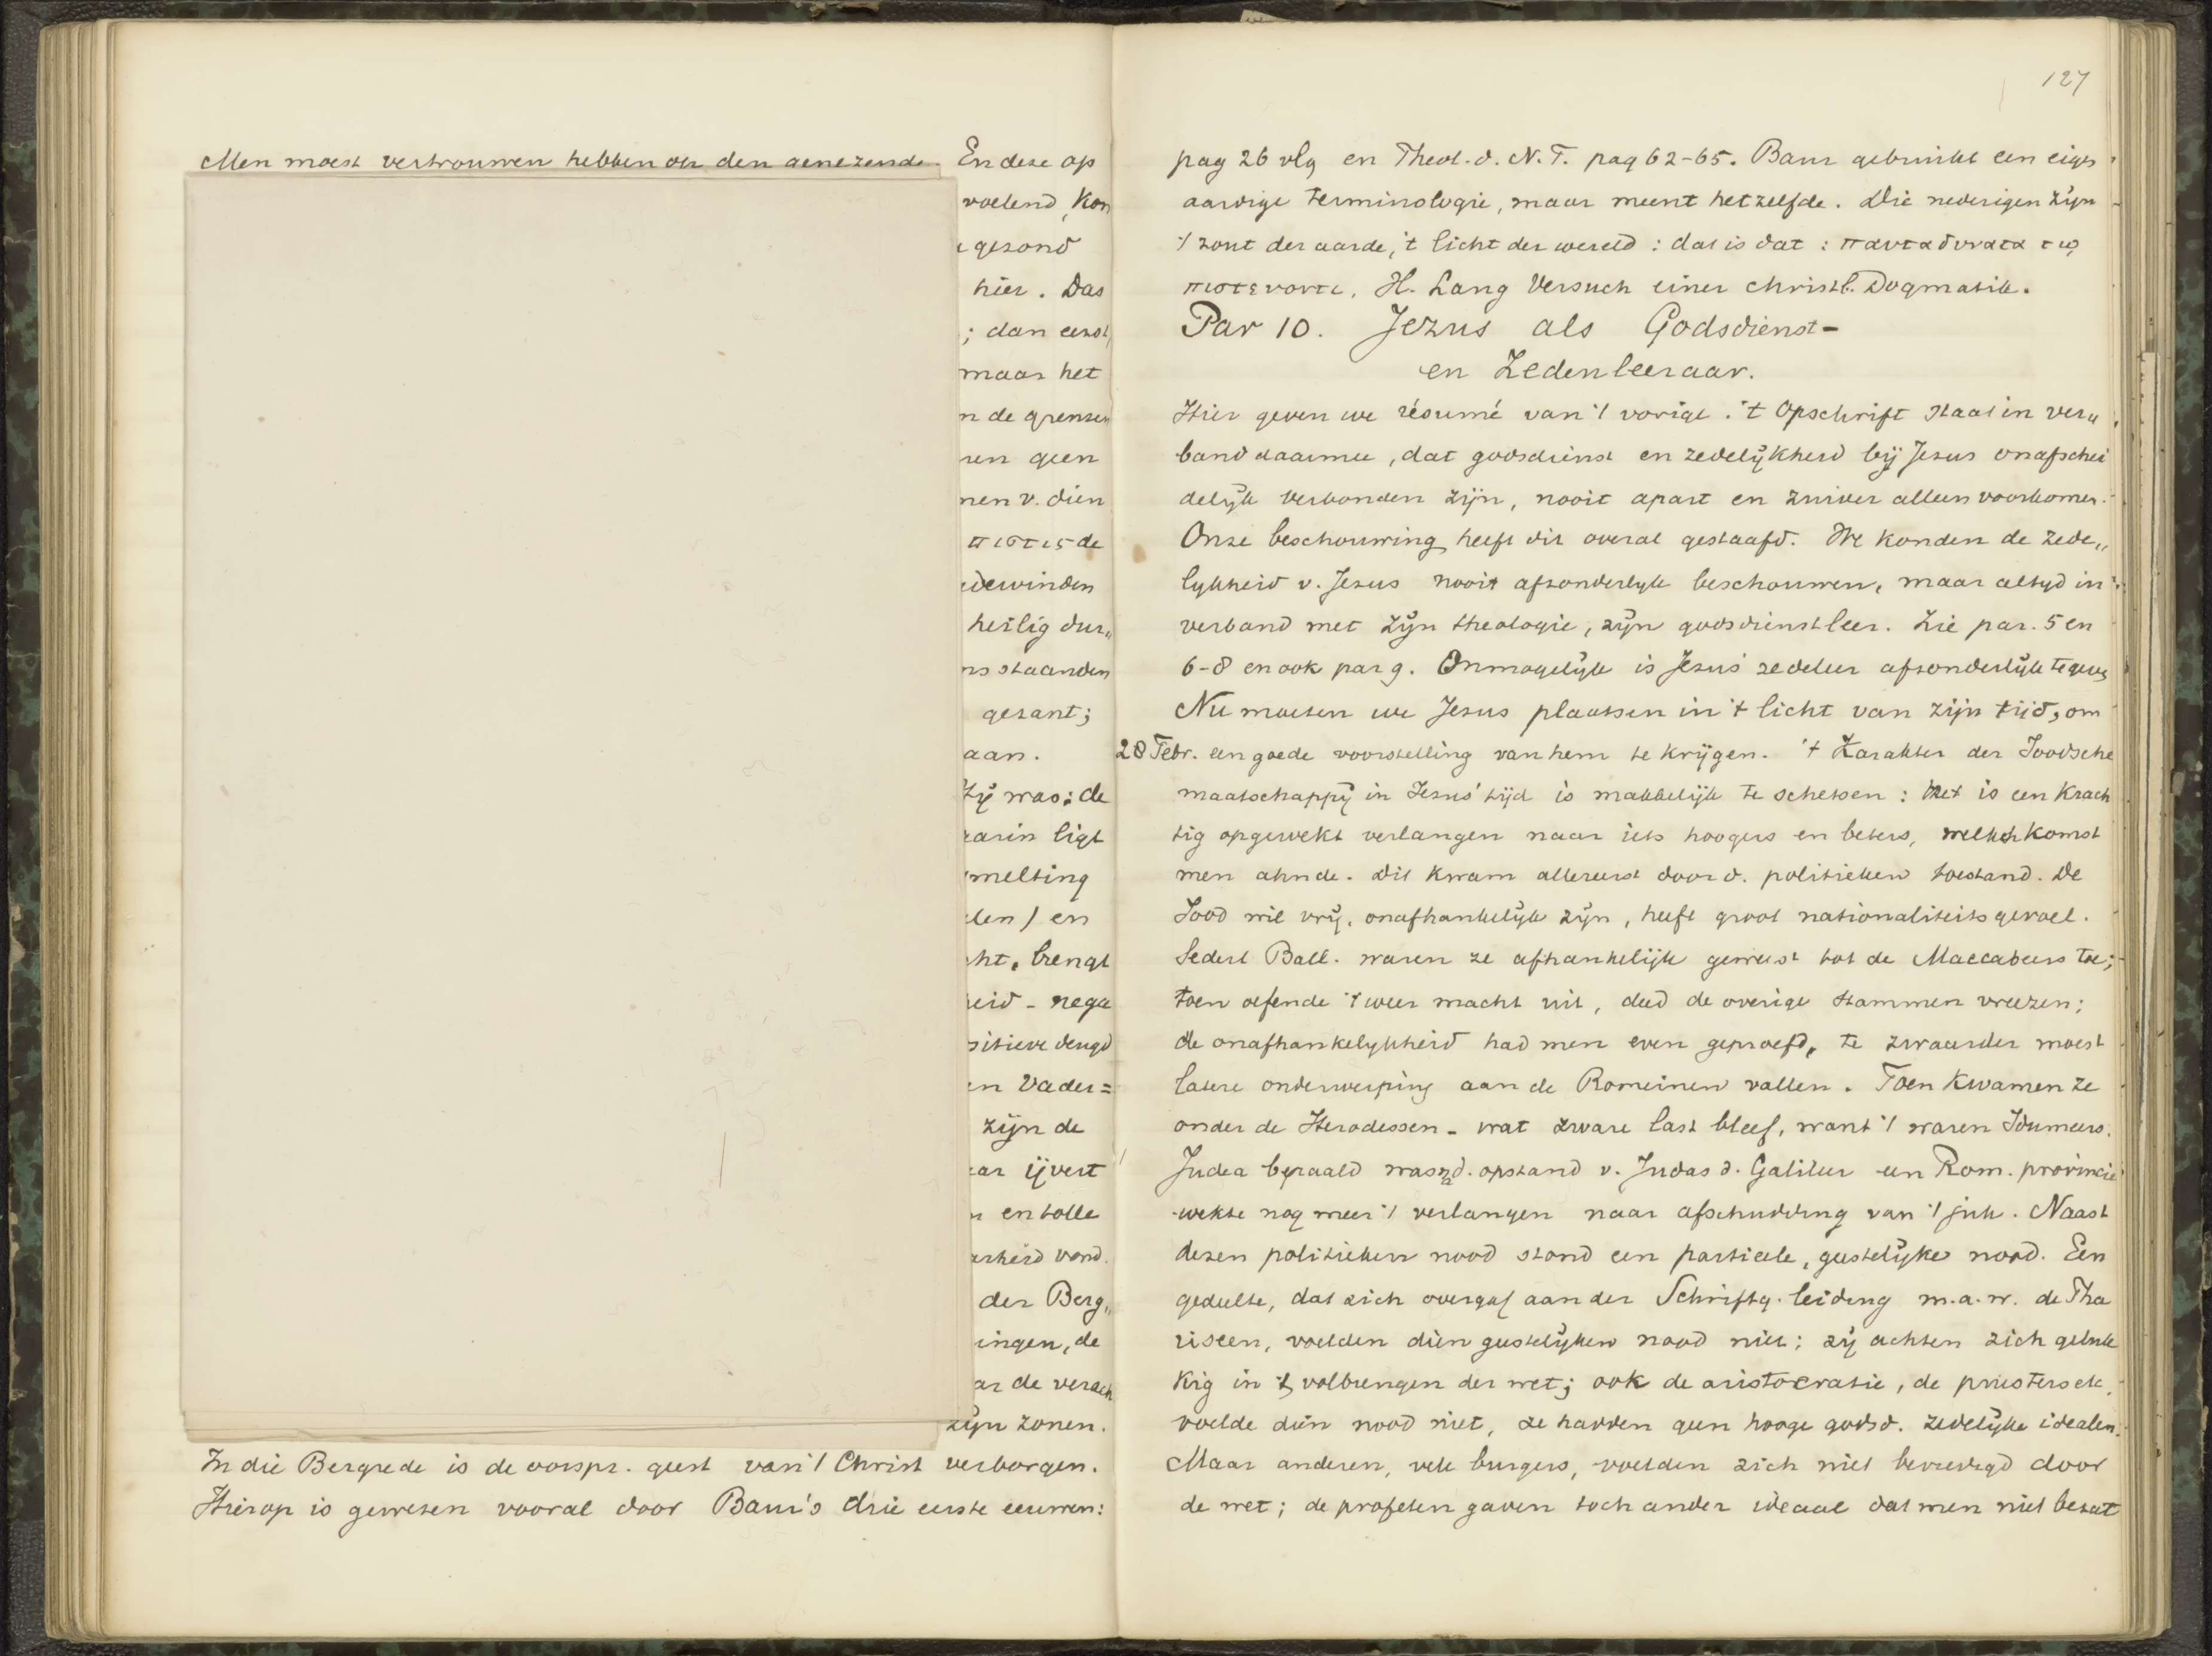 Men moest vertrouwen hebben op den genezende. En deze op
voelend, kon
gezond
hier. Das
; dan eerst
maar het
n de grenzen
ren geen
nen v. dien
πιστις de
dewinden
heilig dur„
ns staanden
gezant;
aan.
Hij was: de
aarin ligt
melting
den) en
ht, brengt
heid - nega
sitieve deugd
en Vader=
zijn de
aar ijvert
n en tolle
arheid vond.
der Berg„
ingen, de
ar de verach
zijn zonen.
In die Bergrede is de oorspr. geest van 't Christ verborgen.
Hierop is gewezen vooral door Baur's drie eerste eeuwen:
127
pag 26 vlg en Theol. d. N. T. pag 62-65. Baur gebruikt een eigen
aardige terminologie, maar meent hetzelfde. Die nederigen zijn
't zout der aarde, 't licht der wereld: dat is dat: παντα δυνατα τω
πιστευοντι. H. Lang Versuch einer christl. Dogmatik.
Par 10. Jezus als Godsdienst-
en Zedenleeraar.
Hier geven we résumé van 't vorige. 't Opschrift staat in ver„
band daarmee, dat godsdienst en zedelijkheid bij Jezus onafschei
delijk verbonden zijn, nooit apart en zuiver alleen voorkomen.
Onze beschouwing heeft dit overal gestaafd. We konden de zede„
lijkheid v. Jezus nooit afzonderlijk beschouwen, maar altijd in
verband met zijn theologie, zijn godsdienstleer. Zie par. 5 en
6-8 en ook par 9. Onmogelijk is Jezus' zedeleer afzonderlijk te geven
Nu moeten we Jezus plaatsen in 't licht van zijn tijd, om
28 Febr. een goede voorstelling van hem te krijgen. 't Karakter der Joodsche
maatschappij in Jezus' tijd is makkelijk te schetsen: het is een krach
tig opgewekt verlangen naar iets hoogers en beters, welks komst
men ahnde. Dit kwam allereerst door d. politieken toestand. De
Jood wil vrij, onafhankelijk zijn, heeft groot nationaliteitsgevoel.
Sedert Ball. waren ze afhankelijk geweest tot de Maccabeers toe;
toen oefende 't weer macht uit, deed de overige stammen vreezen;
de onafhankelijkheid had men even geproefd, te zwaarder moest
latere onderwerping aan de Romeinen vallen. Toen kwamen ze
onder de Herodessen - wat zware last bleef, want 't waren Idumeers.
Judea bepaald was na d. opstand v. Judas d. Galileer een Rom. provincie
wekte nog meer 't verlangen naar afschudding van 't juk. Naast
dezen politieken nood stond een partieele, geestelijke nood. Een
gedeelte, dat zich overgaf aan der Schriftg. leiding m.a.w. de Pha
riseen, voelden dien geestelijken nood niet; zij achten zich geluk
kig in 't volbrengen der wet; ook de aristocratie, de priesters etc,
voelde dien nood niet, ze hadden geen hooge godsd. zedelijke idealen.
Maar anderen, vele burgers, voelden zich niet bevredigd door
de wet; de profeten gaven toch ander ideaal dat men niet bezat